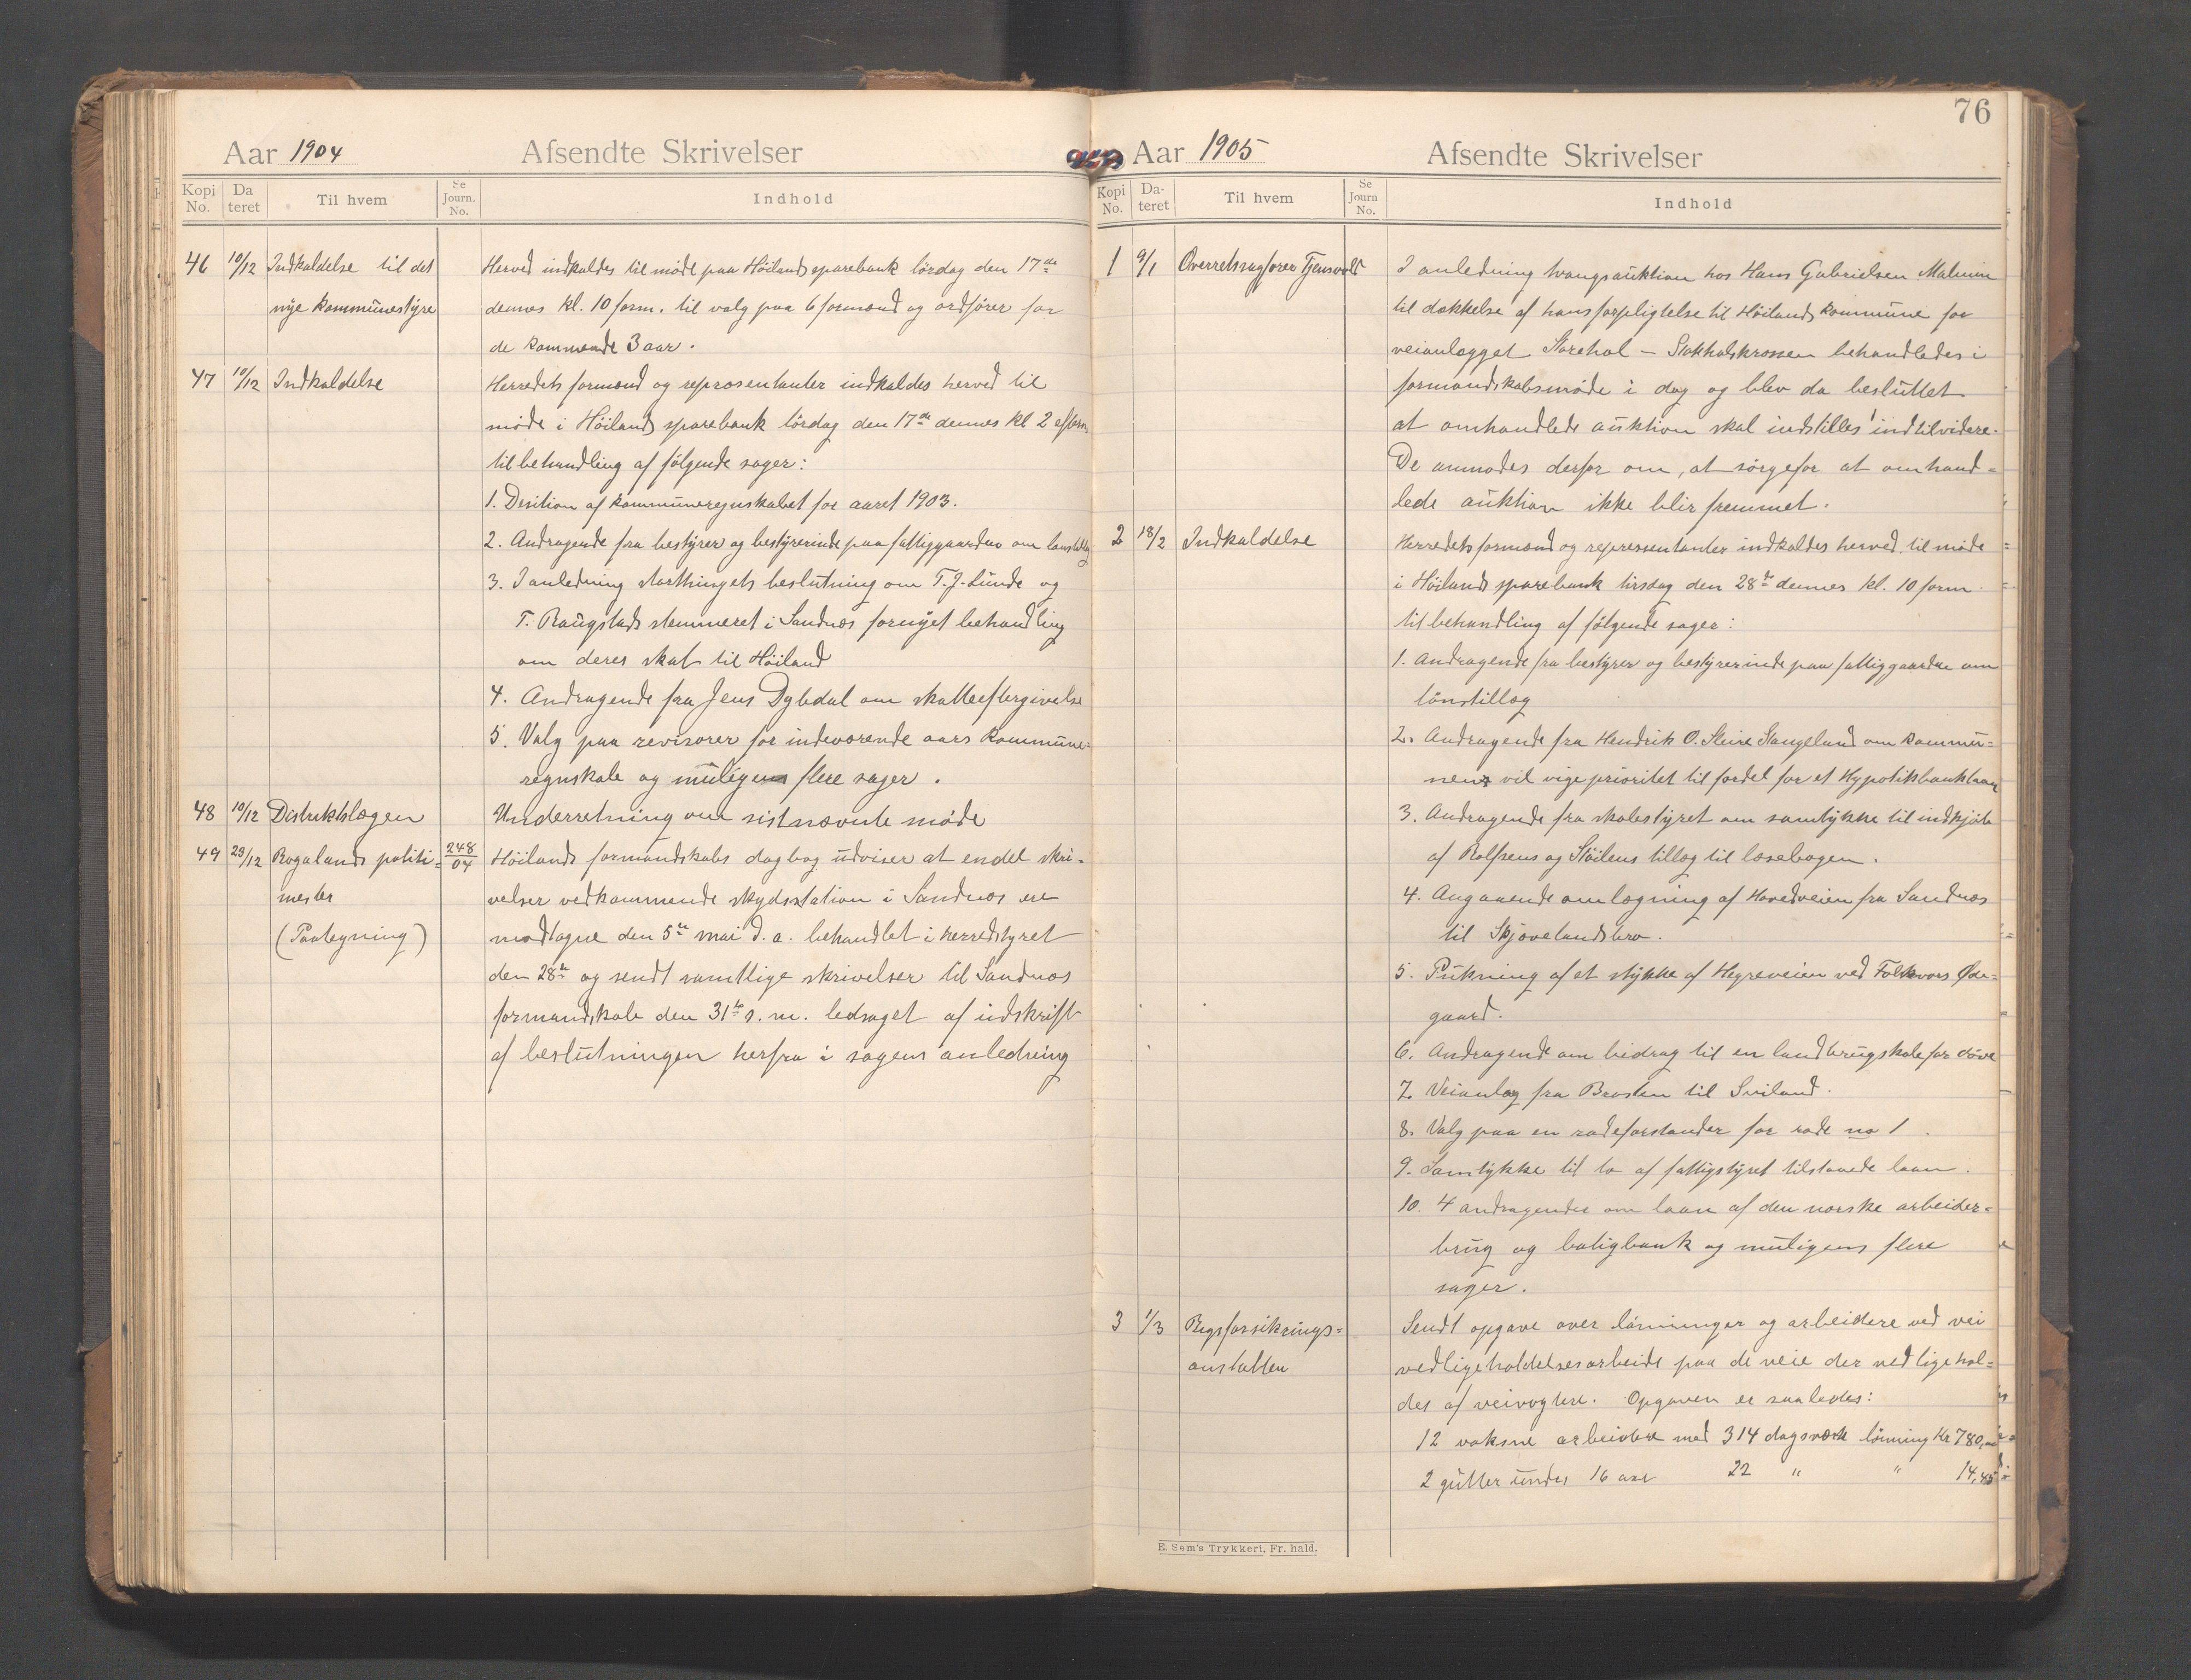 Aar 1904
Afsendte Skrivelser
Kopi No.
Da teret
Til hvem
Se Journ. No.
Indhold
46 10/12 Indkaldelse til det
nye kommunestyre
Herved indkaldes til møde paa Höilands sparebank lördag den 17de
dennes kl. 10 form. til valg paa 6 formænd og ordfører for
de kommende 3 aar.
47 10/12 Indkaldelse
Herredets formænd og repræsentanter indkaldes herved til
møde i Höilands sparebank lördag den 17de dennes kl 2 efterm
til behandling af følgende sager:
1. Desition af kommuneregnskabet for aaret 1903.
2. Andragende fra bestyrer og bestyrerinde paa fattiggaarden om lønstillæg
3. I anledning storthingets beslutning om T. J. Lunde og
T. Raugstads stemmeret i Sandnæs fornyet behandling
om deres skat til Höiland
4. Andragende fra Jens Dybdal om skatteeftergivelse
5. Valg paa revisorer for indeværende aars kommune=
regnskab og muligens flere sager.
48 10/12 Distriktslægen
Underretning om sistnævnte møde
49 29/12 Rogalands politi=
mester
(Paategning)
248/04
Höilands formandskabs dagbog udviser at endel skri-
velser vedkommende skydsstation i Sandnæs ere
modtagne den 5te mai d.a. behandlet i herredstyret
den 28de og sendt samtlige skrivelser til Sandnæs
formandskab den 31te s.m. ledsaget af udskrift
af beslutningen herfra i sagens anledning
76
Aar 1905
Afsendte Skrivelser
Kopi No.
Da-teret
Til hvem
Se Journ No.
Indhold
1 9/1 Overretssagfører Tjensvold
I anledning tvangsauktion hos Hans Gabrielsen Malmin
til dækkelse af hans forpligtelse til Höilands kommune for
veianlægget Storehol – Stokkalskrossen behandledes i
formandskabsmøde i dag og blev da besluttet
at omhandlede auktion skal indstilles indtilvidere.
De anmodes derfor om, at sørge for at omhand=
lede auktion ikke blir fremmet.
2 18/2 Indkaldelse
Herredets formænd og repressentanter indkaldes herved til møde
i Höilands sparebank tirsdag den 28de dennes kl. 10 form
til behandling af følgende sager:
1. Andragende fra bestyrer og bestyrerinde paa fattiggaarden om
lönstillæg
2. Andragende fra Hendrik O. Skeire Stangeland om kommu=
nens vil vige prioritet til fordel for et Hypotekbanklaan
3. Andragende fra skolestyret om samtykke til indkjøb
af Rolfsens og Stöilens tillæg til læsebogen.
4. Angaaende omlægning af Hovedveien fra Sandnæs
til Skjævelandsbro.
5. Pukning af et stykke af Hegreveien ved Folkvors Øde=
gaard.
6. Andragende om bidrag til en landbrugskole for døve
7. Veianlæg fra Brasten til Sviland.
8. Valg paa en rodeforstander for rode no 1.
9. Samtykke til to af fattigstyret tilstaaede laan.
10. 4 andragender om laan af den norske arbeider=
brug og boligbank og muligens flere
sager.
3 1/3 Rigsforsikrings=
anstalten
Sendt opgave over lönninger og arbeidere ved vei
vedligeholdelsesarbeide paa de veie der vedligehol=
des af veivogtere. Opgaven er saaledes:
12 voksne arbeidere med 314 dagsværk lönning Kr 780,
2 gutter under 16 aar 22 " " 14,45
E. Sem's Trykkeri, Fr. hald.